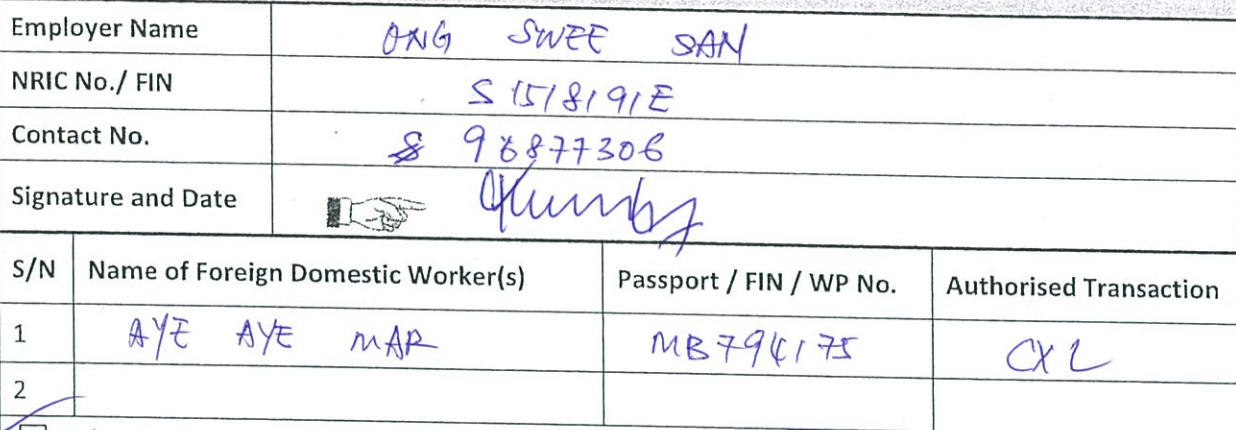 Employer Name ONG SWEE SAN
NRIC No./ FIN S1518191E
Contact No. 96877306
Signature and Date
S/N Name of Foreign Domestic Worker(s) Passport / FIN / WP No. Authorised Transaction
1 AYE AYE MAR MB794175 CXL
2